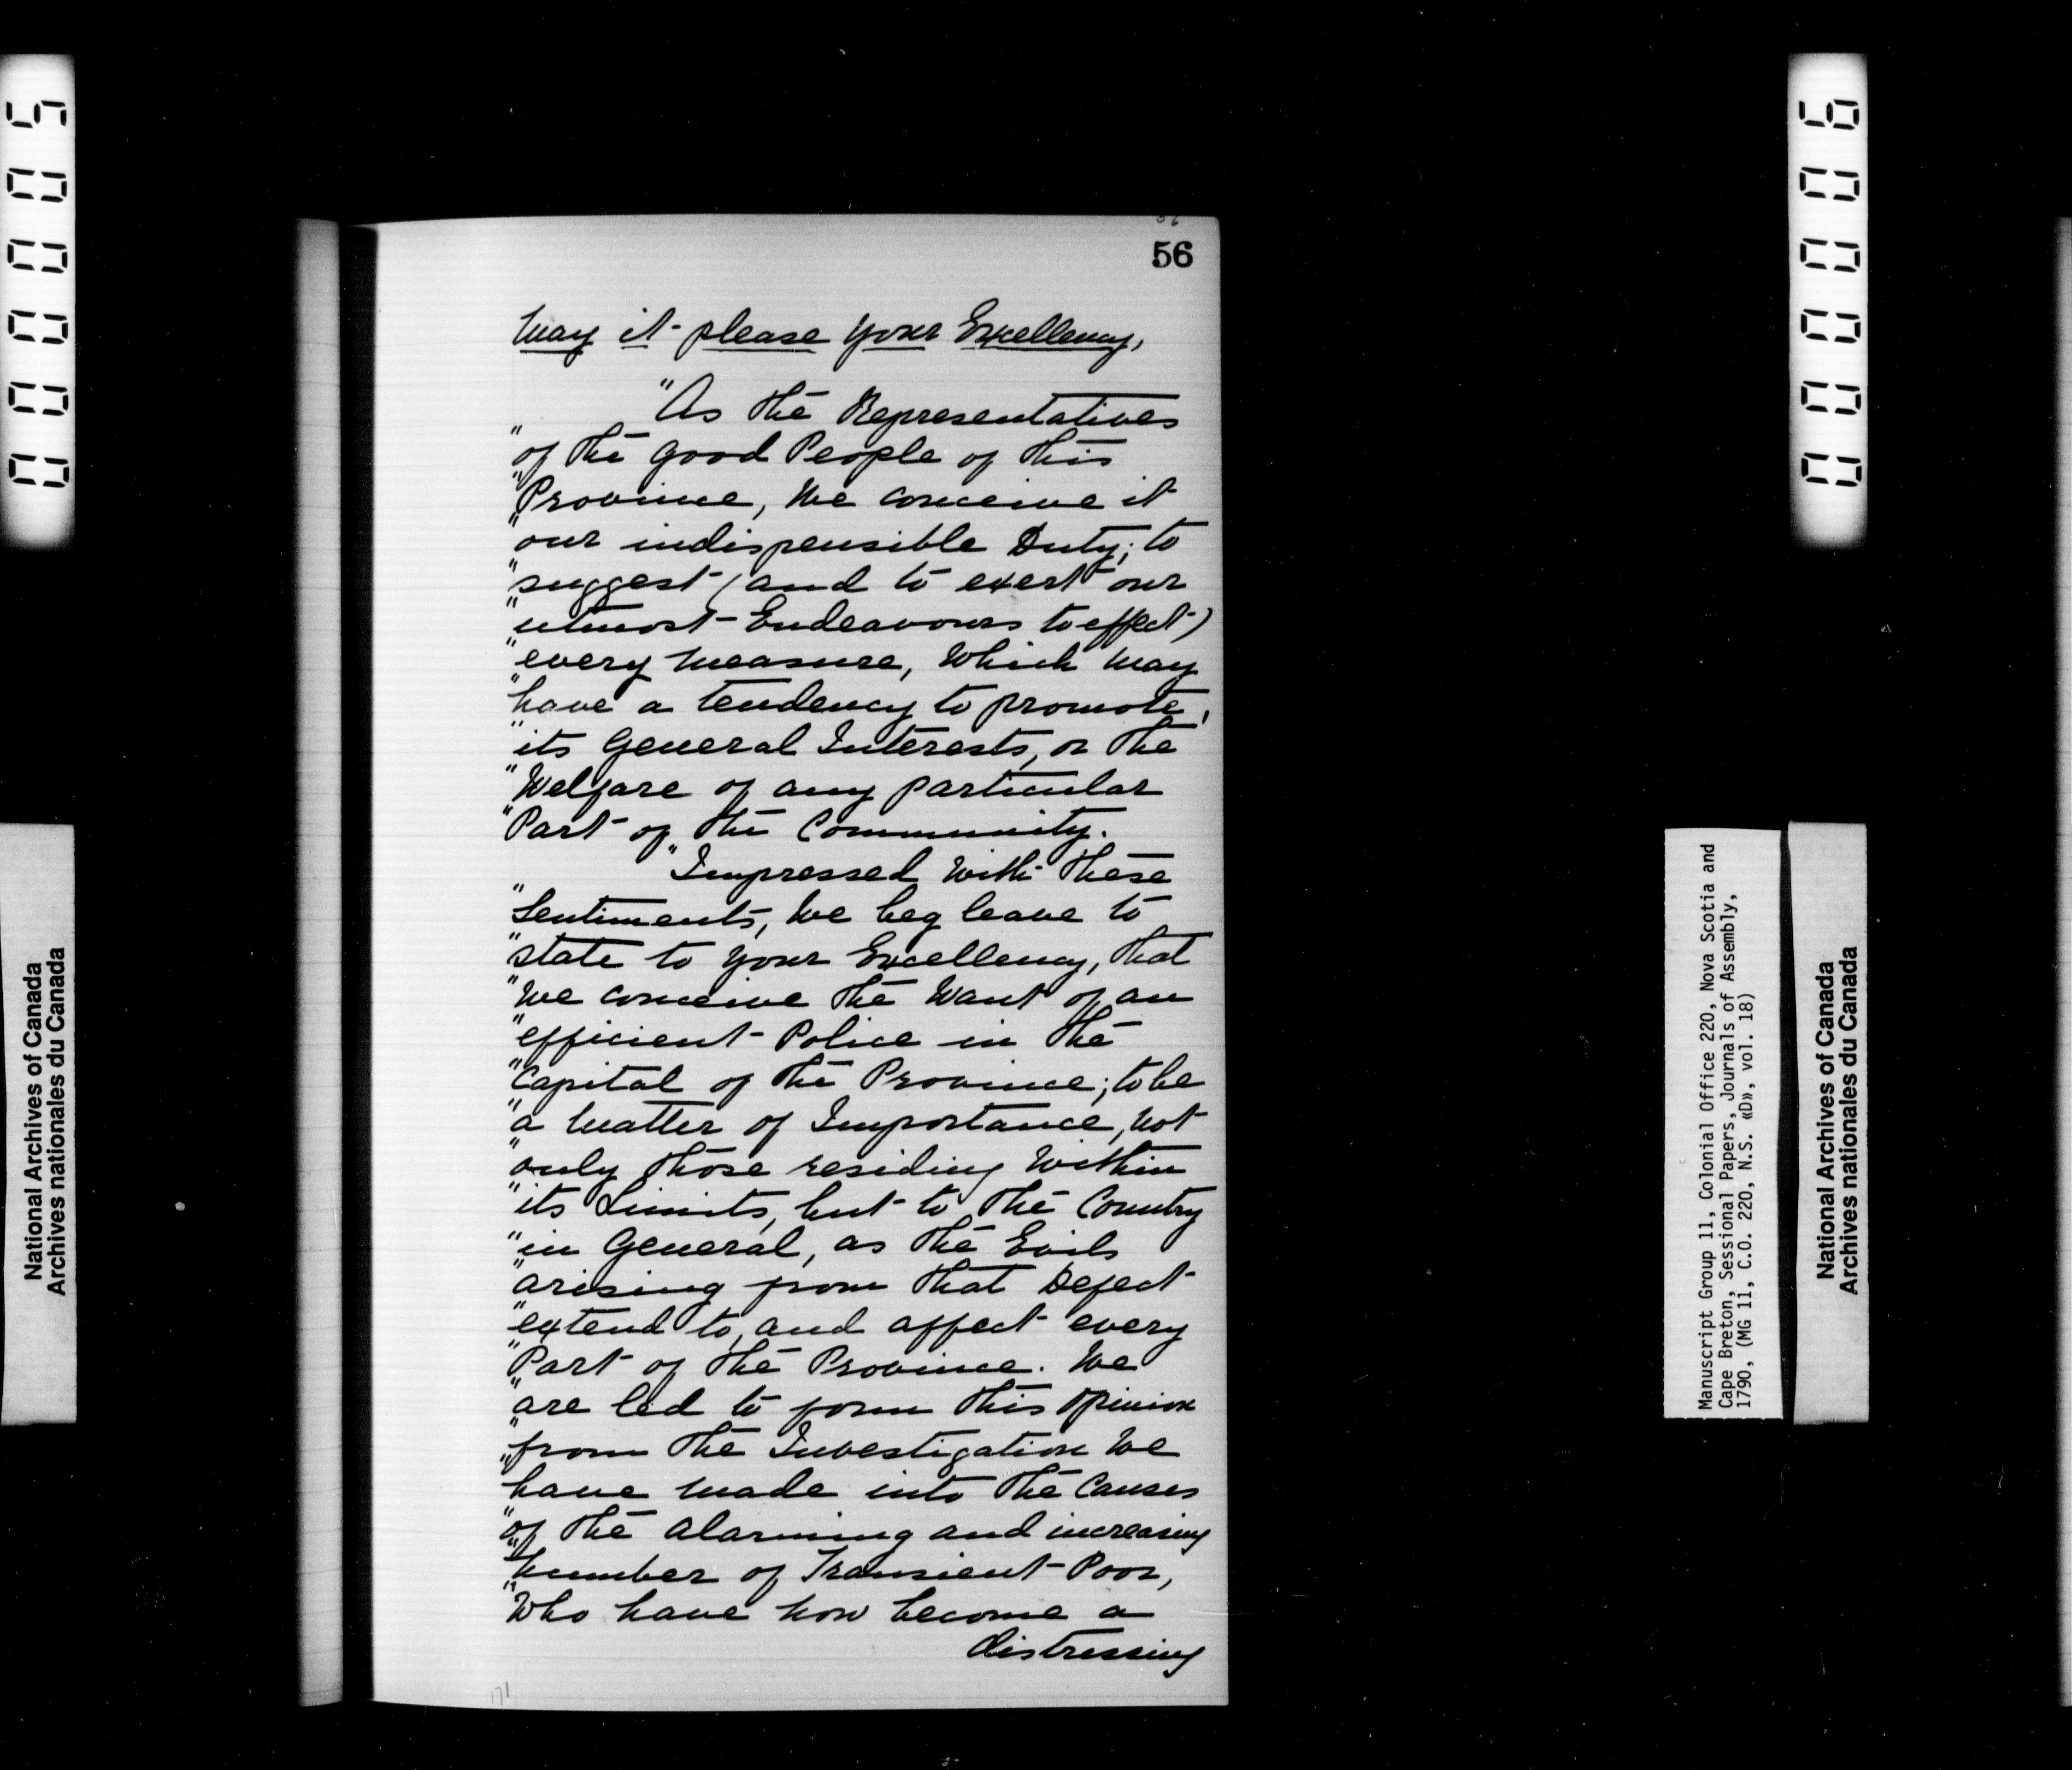 000005
National Archives of Canada
Archives nationales du Canada
56
56
May it please your Excellency,
"As the Representatives
"of the good People of this
"Province, We conceive it
"our indispensible Duty; to
"suggest (and to exert our
"utmost Endeavours to effect)
"every measure, Which may
"have a tendency to promote,
"its General Interests, or the
"Welfare of any particular
"Part of the Community.
"Impressed With these
"Sentiments, We beg leave to
"state to your Excellency, that
"We conceive the Want of an
"efficient Police in the
"Capital of the Province; to be
"a matter of Importance, not
"only those residing Within
"its Limits, but to the Country
"in General, as the Evils
"arising from that Defect
"extend to, and affect every
"Part of the Province. We
"are led to form this Opinion
"from the Investigation We
"have made into the Causes
"of the alarming and increasing
"number of Transient Poor,
"Who have now become a
distressing
171
000006
Manuscript Group 11, Colonial Office 220, Nova Scotia and
Cape Breton, Sessional Papers, Journals of Assembly,
1790, (MG 11, C.O. 220, N.S. «D», vol. 18)
National Archives of Canada
Archives nationales du Canada